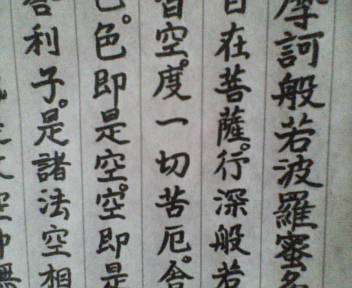 摩訶般若波羅蜜多
自在菩薩。行深般若
皆空。度一切苦厄。舍
色。色即是空。空即是
舍利子。是諸法空相